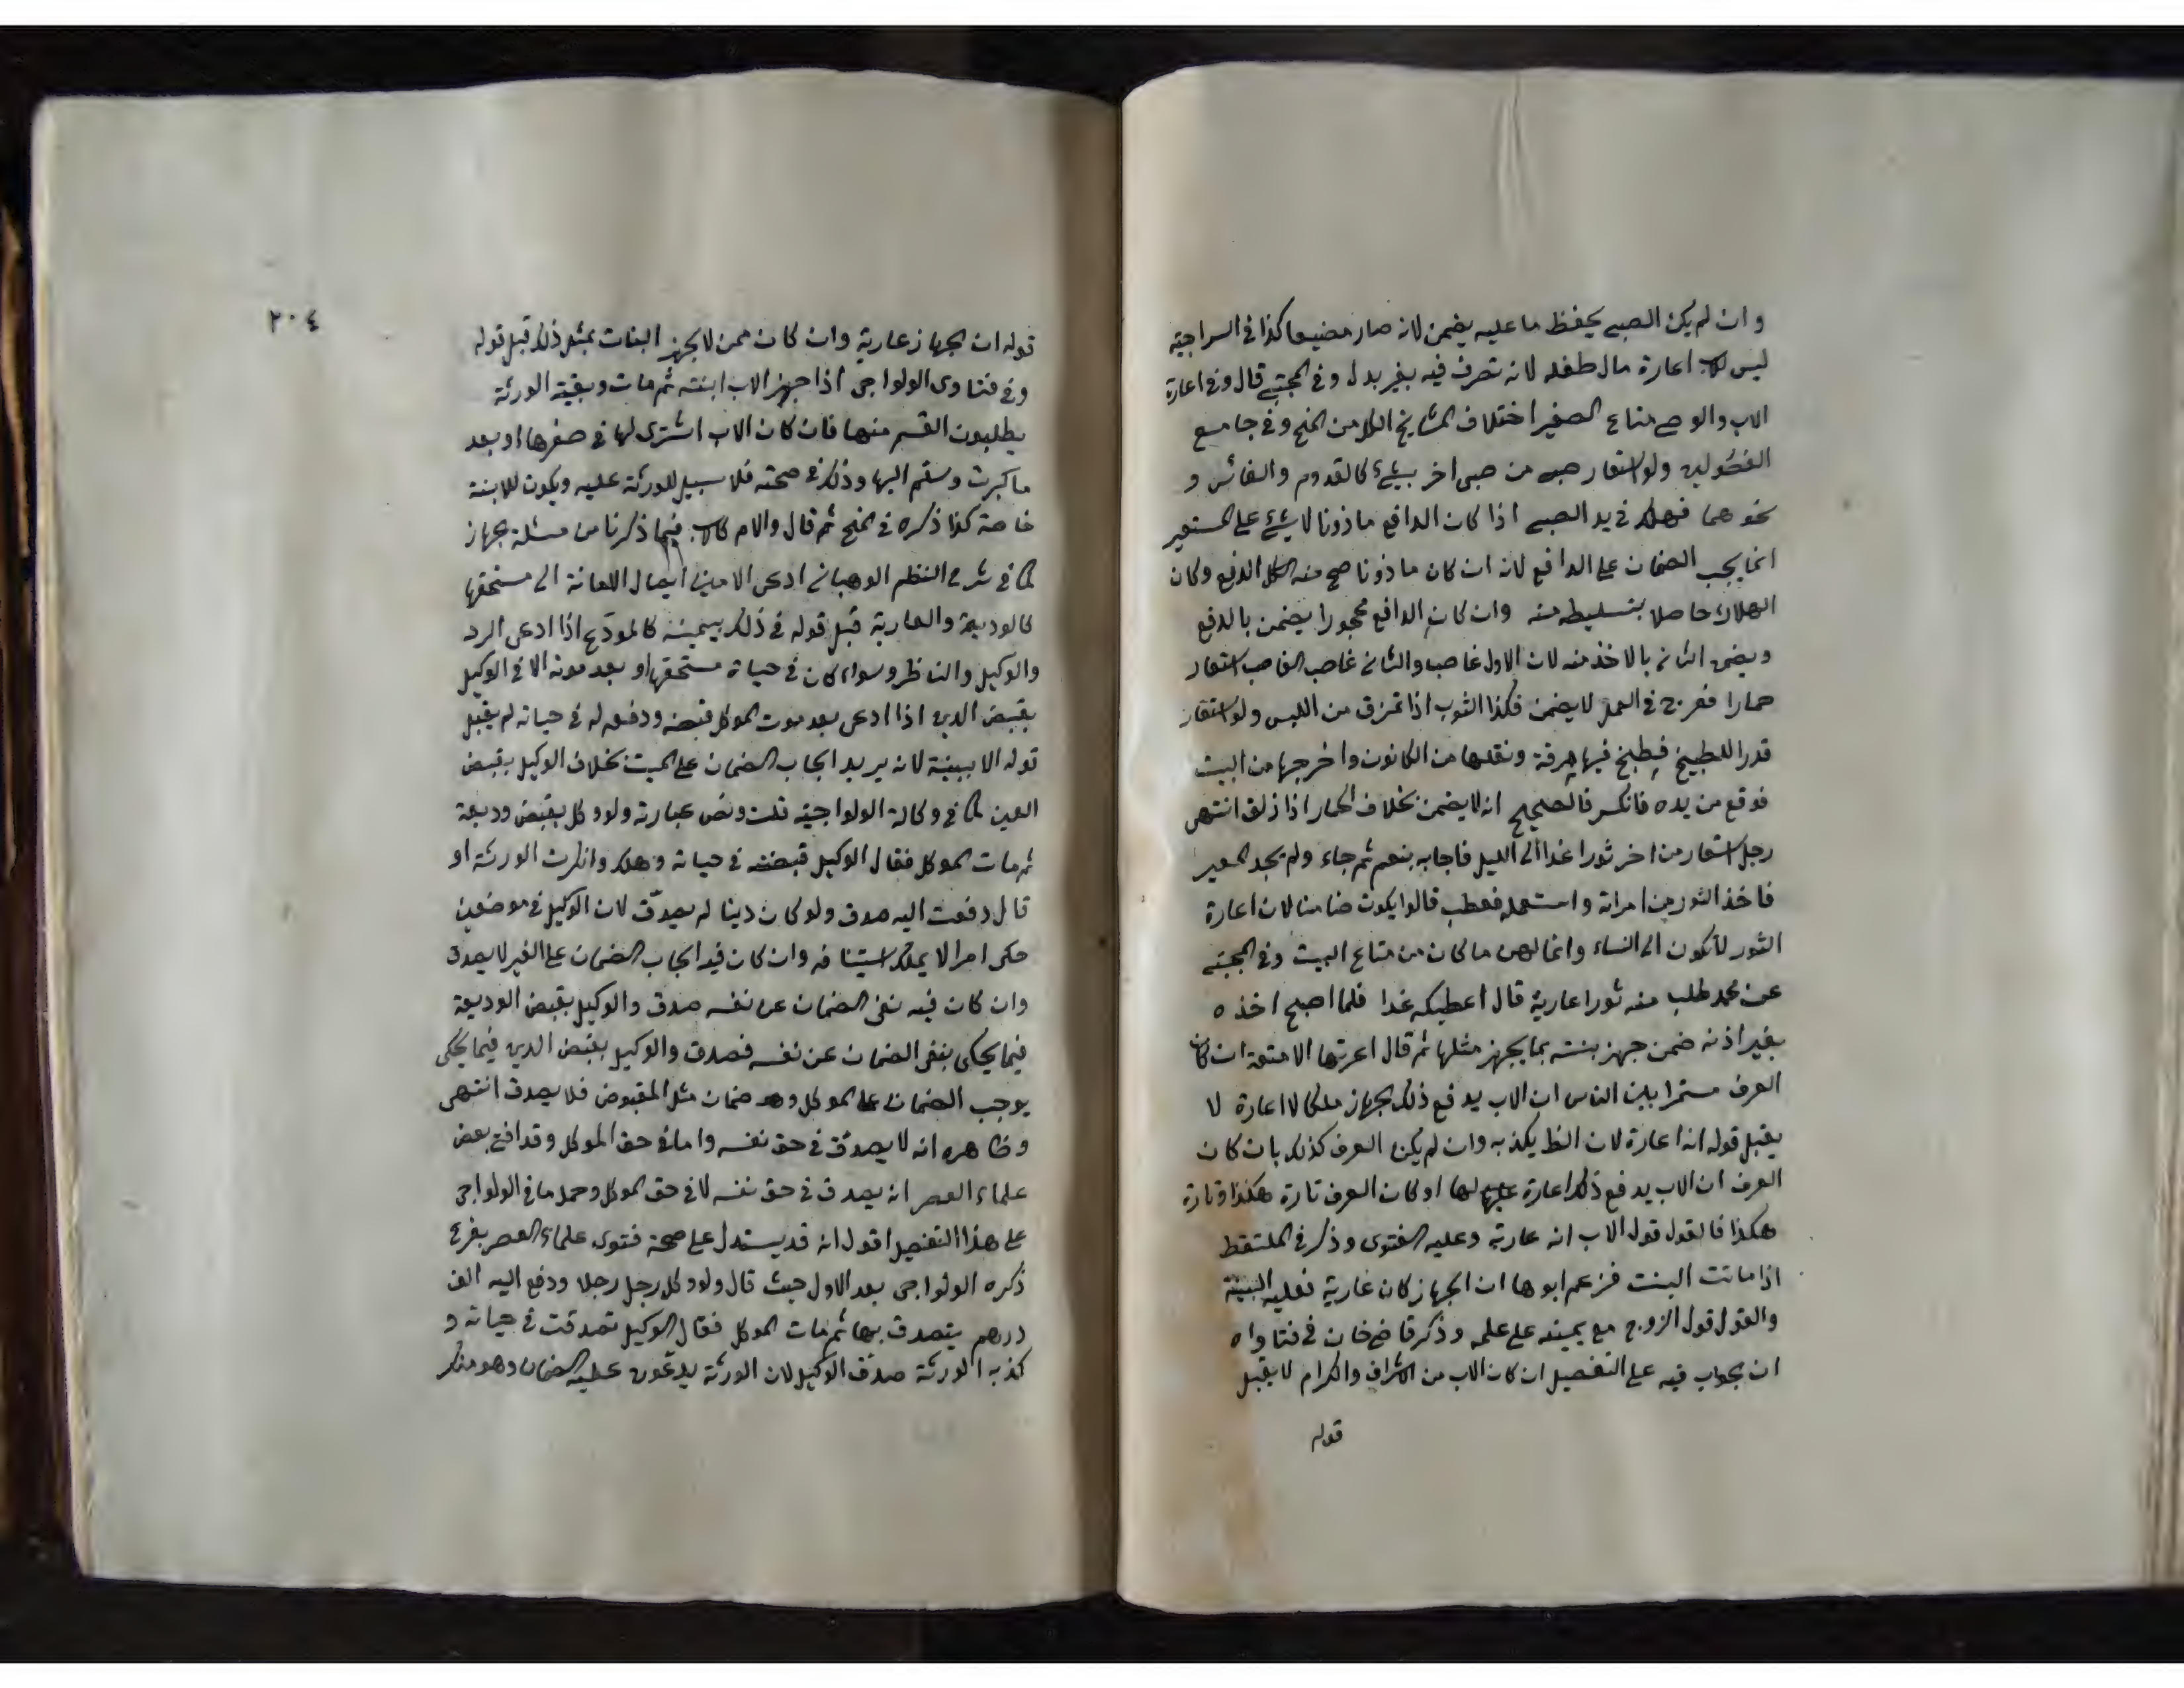 وان لم يكن الصبي يحفظ ما عليه يضمن لانه صار مضيعا كذا في السراجية
ليس للاب اعارة مال طفله لانه تصرف فيه بغير بدل وفي المجتبى قال وفي اعارة
الاب والوصي متاع الصغير اختلاف المشايخ الكل من المنح وفي جامع
الفصولين ولو استعار صبي من صبى اخر شيئ كالقدوم والفاس و
نحوهما فهلك في يد الصبي اذا كان الدافع ماذونا لا شيئ على المستعير
انما يجب الضمان على الدافع لانه ان كان ماذونا صح منه الدفع وكان
الهلاك حاصلا بتسليطه منه وان كان الدافع محجورا يضمن بالدفع
ويضمن الثاني بالاخذ منه لان الاول غاصب والثاني غاصب الغاصب استعار
حمارا فعرج في العمل لا يضمن فكذا الثوب اذا تمزق من اللبس ولو استعار
قدرا للطبيخ فطبخ فيها مرقة ونقلها من الكانون واخرجها من البيت
فوقع من يده فانكسر فالصحيح انه لا يضمن بخلاف الحمار اذا زلق انتهى
رجل استعار من اخر ثورا غدا الى الليل فاجابه بنعم ثم جاء ولم يجد المعير
فاخذ الثور من امراته واستعمله فعطب قالوا يكون ضامنا لان اعارة
الثور لا تكون الى النساء وانما لهن ما كان من متاع البيت وفي المجتبى
عن محمد طلب منه ثورا عارية قال اعطيكه غدا فلما اصبح اخذه
بغير اذنه ضمن جهز بنته بما يجهز مثلها ثم قال اعرتها الامتعة ان كان
العرف مستمرا بين الناس ان الاب يدفع ذلك الجهاز ملكا لا اعارة لا
يقبل قوله انه اعارة لان الظ يكذبه وان لم يكن العرف كذلك بان كان
العرف ان الاب يدفع ذلك اعارة لها او كان العرف تارة هكذا وتارة
هكذا فالقول قول الاب انه عارية وعليه الفتوى وذكر في الملتقط
اذا ماتت البنت فزعم ابوها ان الجهاز كان عارية فعليه البينة
والقول قول الزوج مع يمينه على علمه وذكر قاضى خان في فتاواه
ان الجواب فيه على التفصيل ان كان الاب من الاشراف والكرام لا يقبل
قوله
٢٠٤
قوله ان الجهاز عارية وان كان ممن لا يجهز البنات بمثل ذلك قبل قوله
وفي فتاوى الولوالجي اذا جهز الاب ابنته ثم مات وبقية الورثة
يطلبون القسم منها فان كان الاب اشترى لها في صغرها او بعد
ما كبرت وسلم اليها وذلك في صحته فلا سبيل للورثة عليه ويكون للابنة
خاصة كذا ذكره في المنح ثم قال والام كالاب فيما ذكرنا من مسئلة جهاز
كما في شرح النظم الوهباني ادعى الامين ايصال الامانة الى مستحقها
كالوديعة والعارية قبل قوله في ذلك بيمينه كالمودع اذا ادعى الرد
والوكيل والناظر وسواء كان في حياة مستحقها او بعد موته الا في الوكيل
بقبض الدين اذا ادعى بعد موت الموكل قبضه ودفعه له في حياته لم يقبل
قوله الا ببينة لانه يريد ايجاب الضمان على الميت بخلاف الوكيل بقبض
العين كما في وكالة الولوالجية قلت ونص عبارته ولو وكل بقبض وديعة
ثم مات الموكل فقال الوكيل قبضته في حياته وهلك وانكرت الورثة او
قال دفعت اليه صدق ولو كان دينا لم يصدق لان الوكيل في موضعين
حكى امرا لا يملك استينافه وان كان فيه ايجاب الضمان على الغير لا يصدق
وان كان فيه نفى الضمان عن نفسه صدق والوكيل بقبض الوديعة
فيما يحكى بنفى الضمان عن نفسه فصدق والوكيل بقبض الدين فيما يحكى
يوجب الضمان على الموكل وهو ضمان مثل المقبوض فلا يصدق انتهى
وظاهره انه لا يصدق في حق نفسه واما في حق الموكل وقد افتى بعض
علماء العصر انه يصدق في حق نفسه لا في حق الموكل وحمله ما في الولوالجي
على هذا التفصيل اقول انه قد يستدل على صحة فتوى علماء العصر بفرع
ذكره الولوالجي بعد الاول حيث قال ولو وكل رجل رجلا ودفع اليه الف
درهم يتصدق بها ثم مات الموكل فقال الوكيل تصدقت في حياته و
كذبه الورثة صدق الوكيل لان الورثة يدعون عليه الضمان وهو منكر